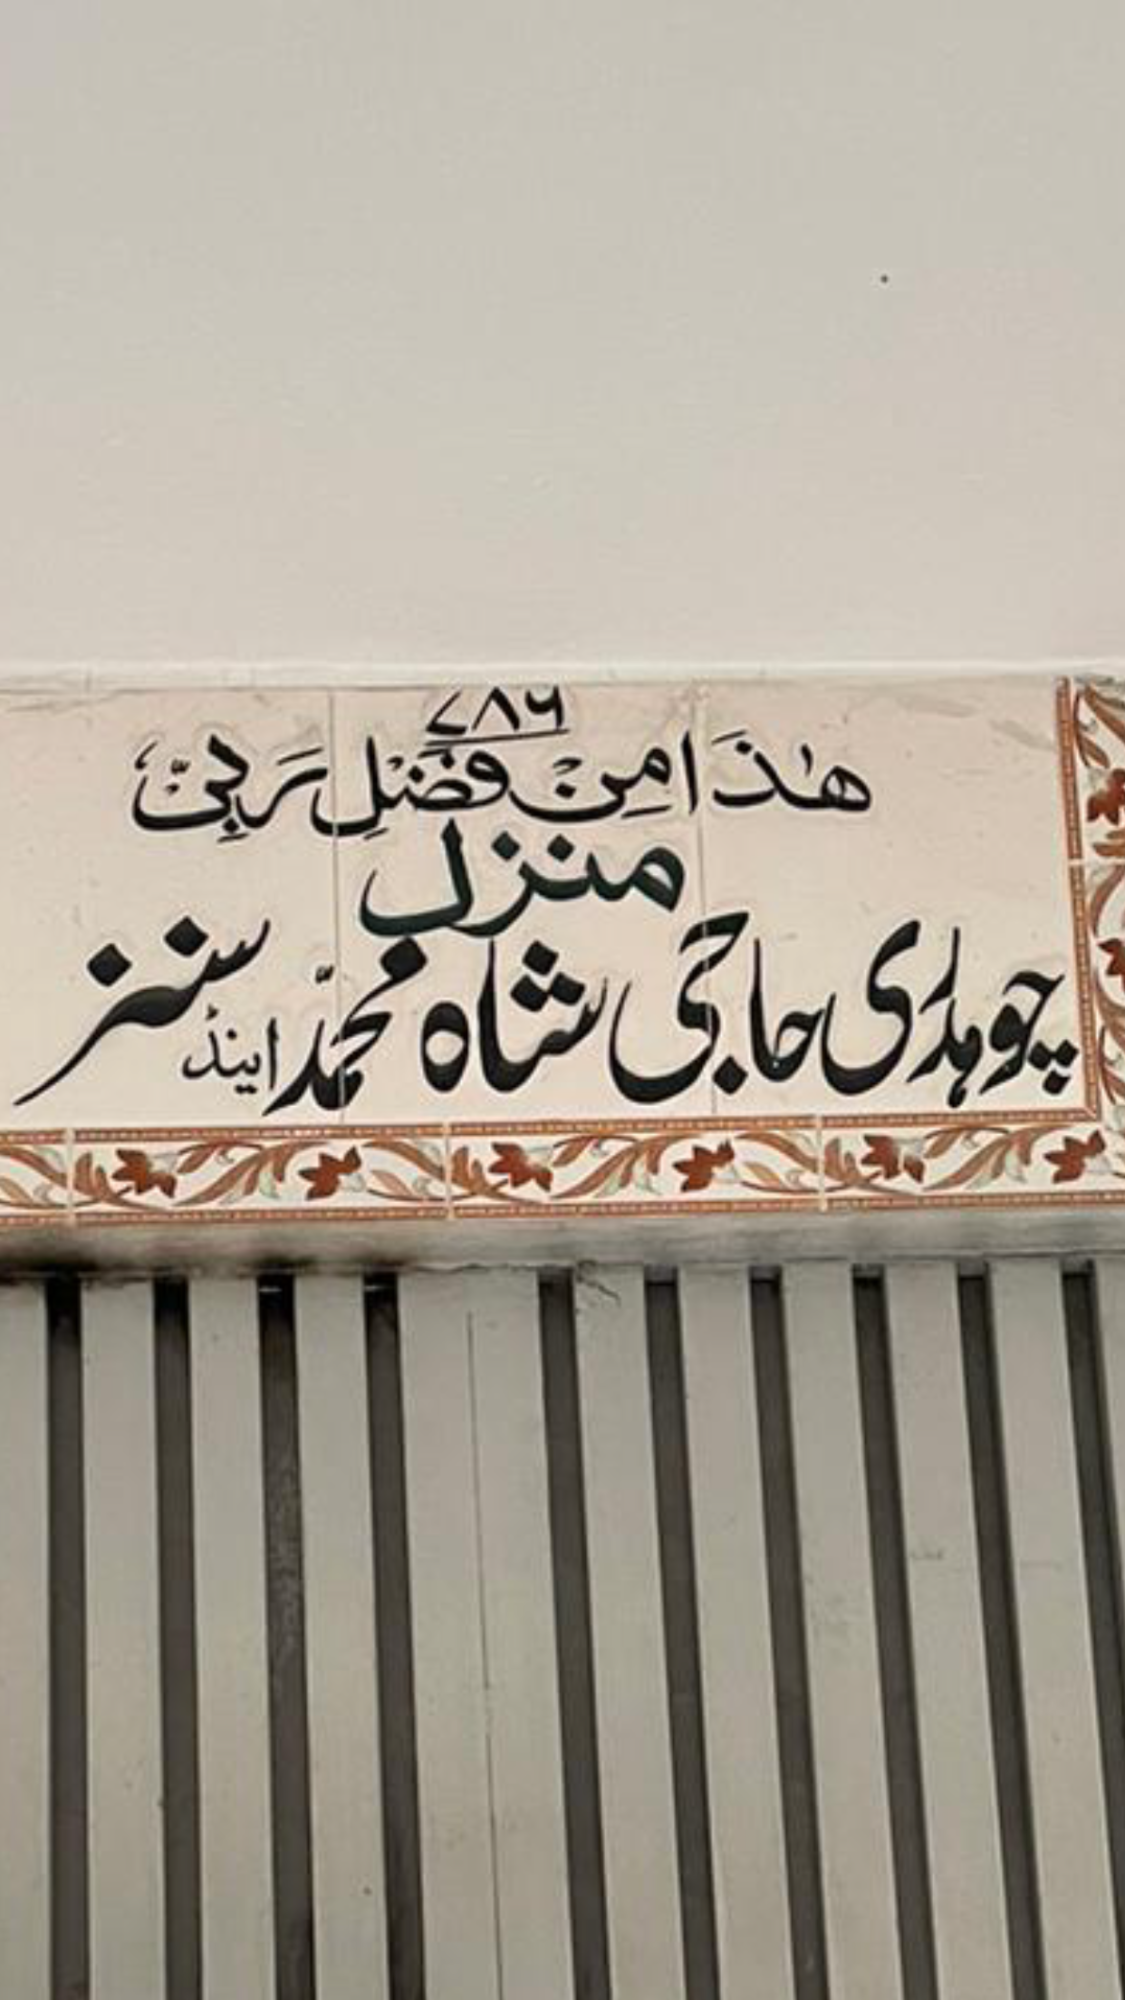 ۷۸۶
هٰذَا مِنْ فَضْلِ رَبِّیْ
منزل
چوہدری حاجی شاہ محمّد اینڈ سنز